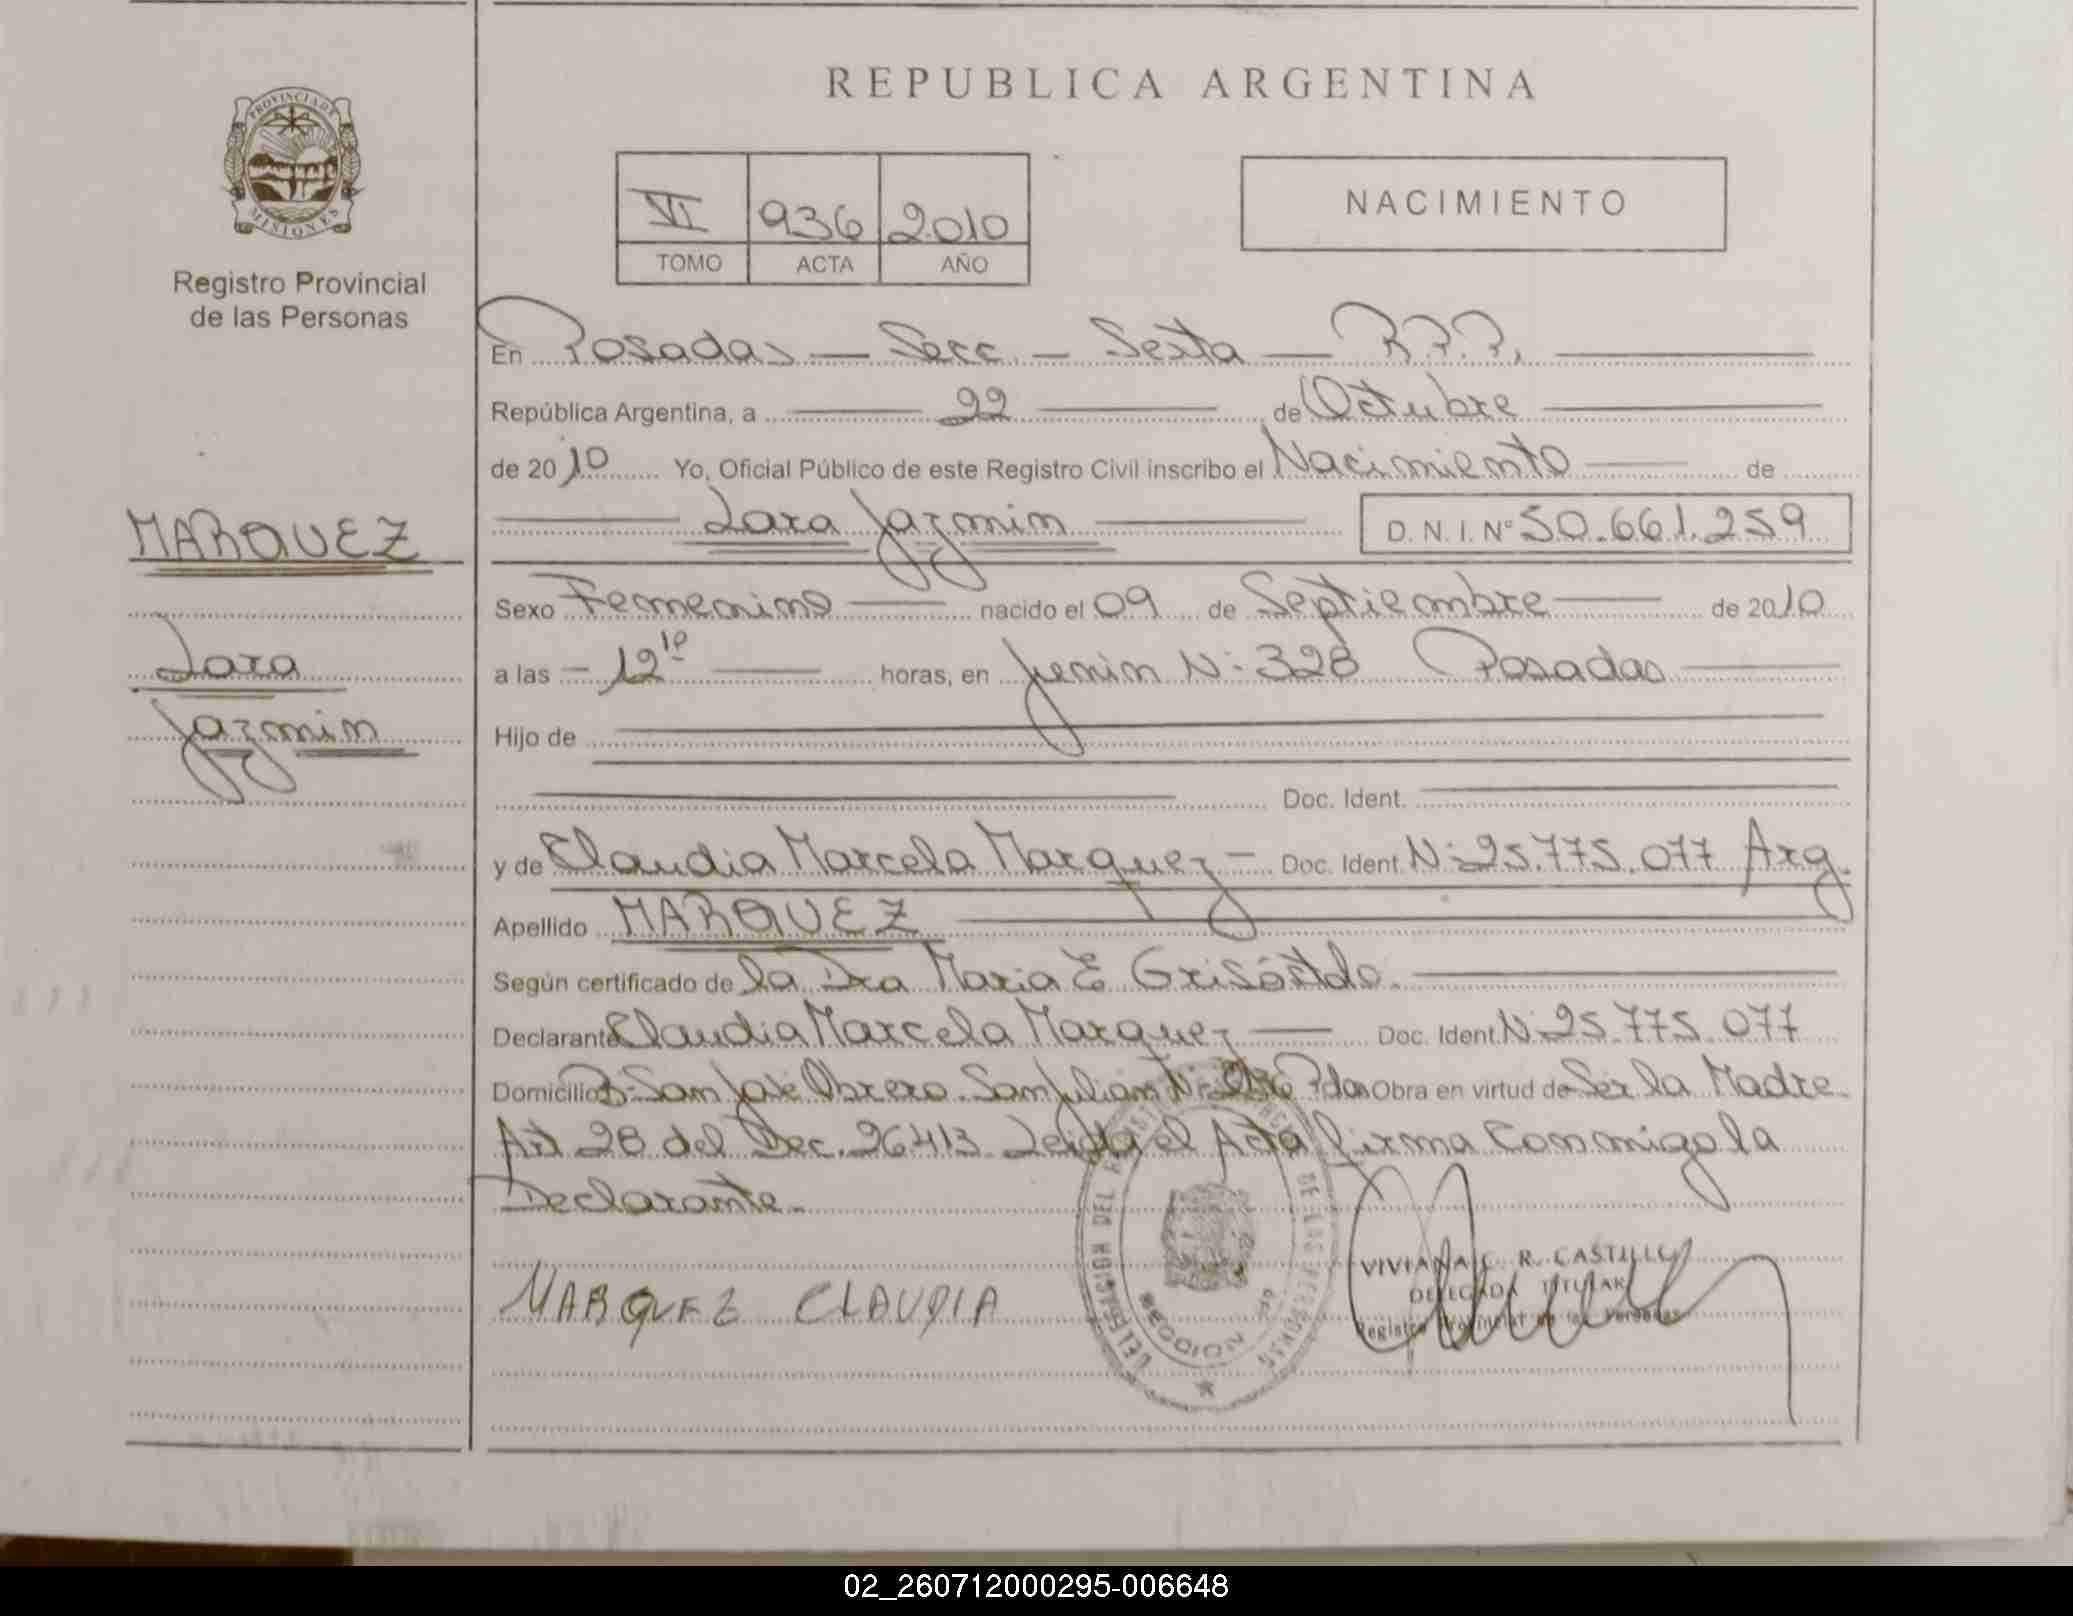 REPUBLICA ARGENTINA
PROVINCIA DE
MISIONES
Registro Provincial
de las Personas
VI 936 2010
TOMO ACTA AÑO
NACIMIENTO
En Posadas — Secc. — Sexta — R.P.P.
República Argentina, a 22 de Octubre
de 2010 Yo, Oficial Público de este Registro Civil inscribo el Nacimiento de
Lara Jazmin D.N.I. Nº 50.661.259
MARQUEZ
Lara
Jazmin
Sexo Femenino nacido el 09 de Septiembre de 2010
a las 12 10 horas, en Junin N: 328 Posadas
Hijo de
Doc. Ident.
y de Claudia Marcela Marquez — Doc. Ident. N: 25.775.077 Arg.
Apellido MARQUEZ
Según certificado de la Dra Maria E
Declarante Claudia Marcela Marquez Doc. Ident. N: 25.775.077
Domicilio B: San José Obrero. San Julian N: Pdas Obra en virtud de Ser la Madre
Art 28 del Dec. 26413 Leida el Acta firma Conmigo la
Declarante.
MARQUEZ CLAUDIA
VIVIANA C. R. CASTILLO
DELEGADA TITULAR
Registro Provincial de las Personas
SECCION
02_260712000295-006648